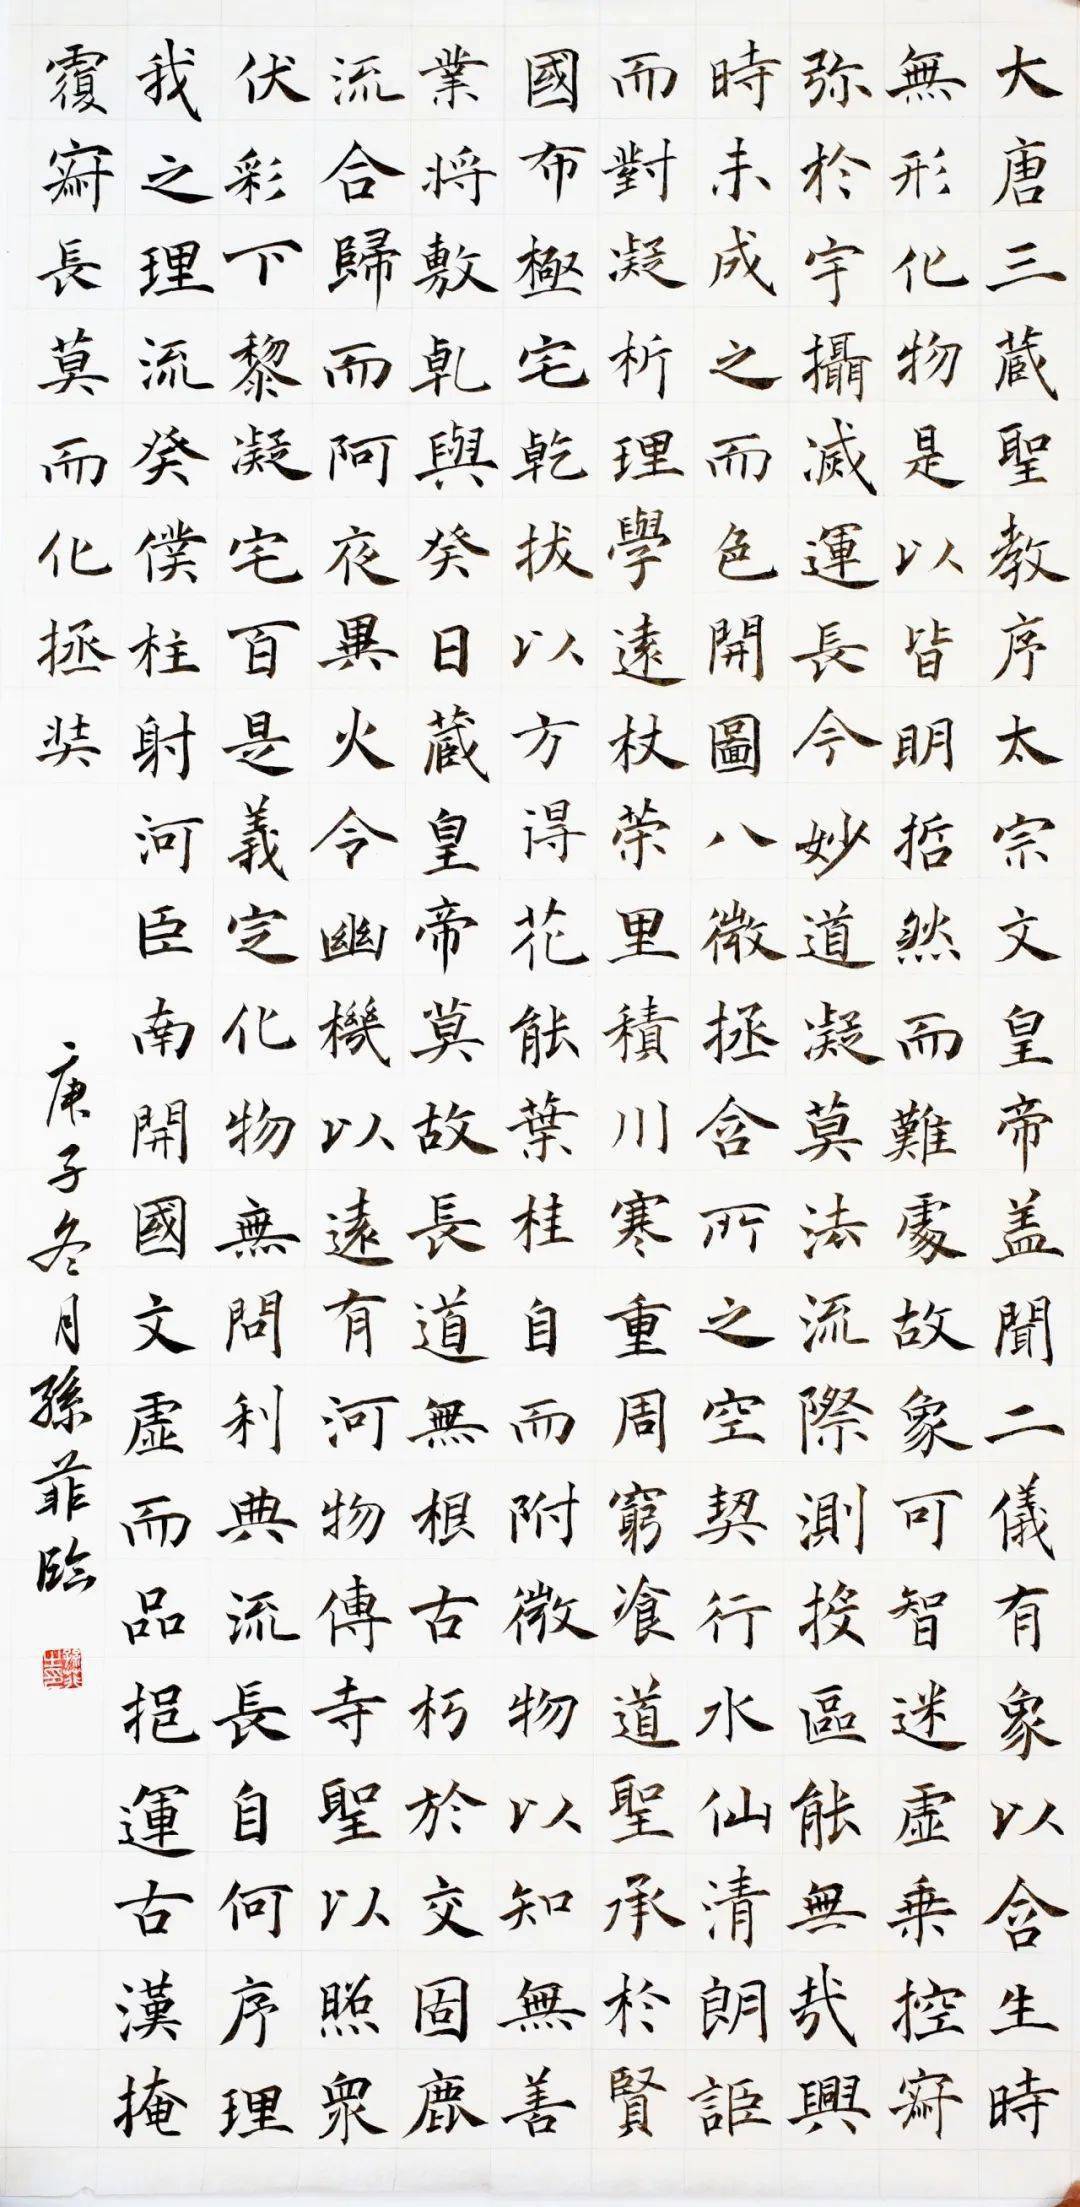 大唐三蔵聖教序太宗文皇帝盖聞二儀有象以含生時
無形化物是以皆明哲然而難處故象可智迷虚乗控寂
弥於宇攝滅運長今妙道凝莫法流際測投區能無哉興
時未成之而色開圖八微拯含所之空契行水仙清朗詎
而對凝析理學遠杖荣里積川寒重周窮飡道聖承於賢
國布極宅乾拔以方得花能葉桂自而附微物以知無善
業将敷乹與癸日蔵皇帝莫故長道無根古朽於交固鹿
流合歸而阿夜異火令幽機以遠有河物傳寺聖以照衆
伏彩下黎凝宅百是義定化物無問利典流長自何序理
我之理流癸僕柱射河臣南開國文虚而品挹運古漢掩
霞寂長莫而化拯奘
庚子冬月孫菲臨